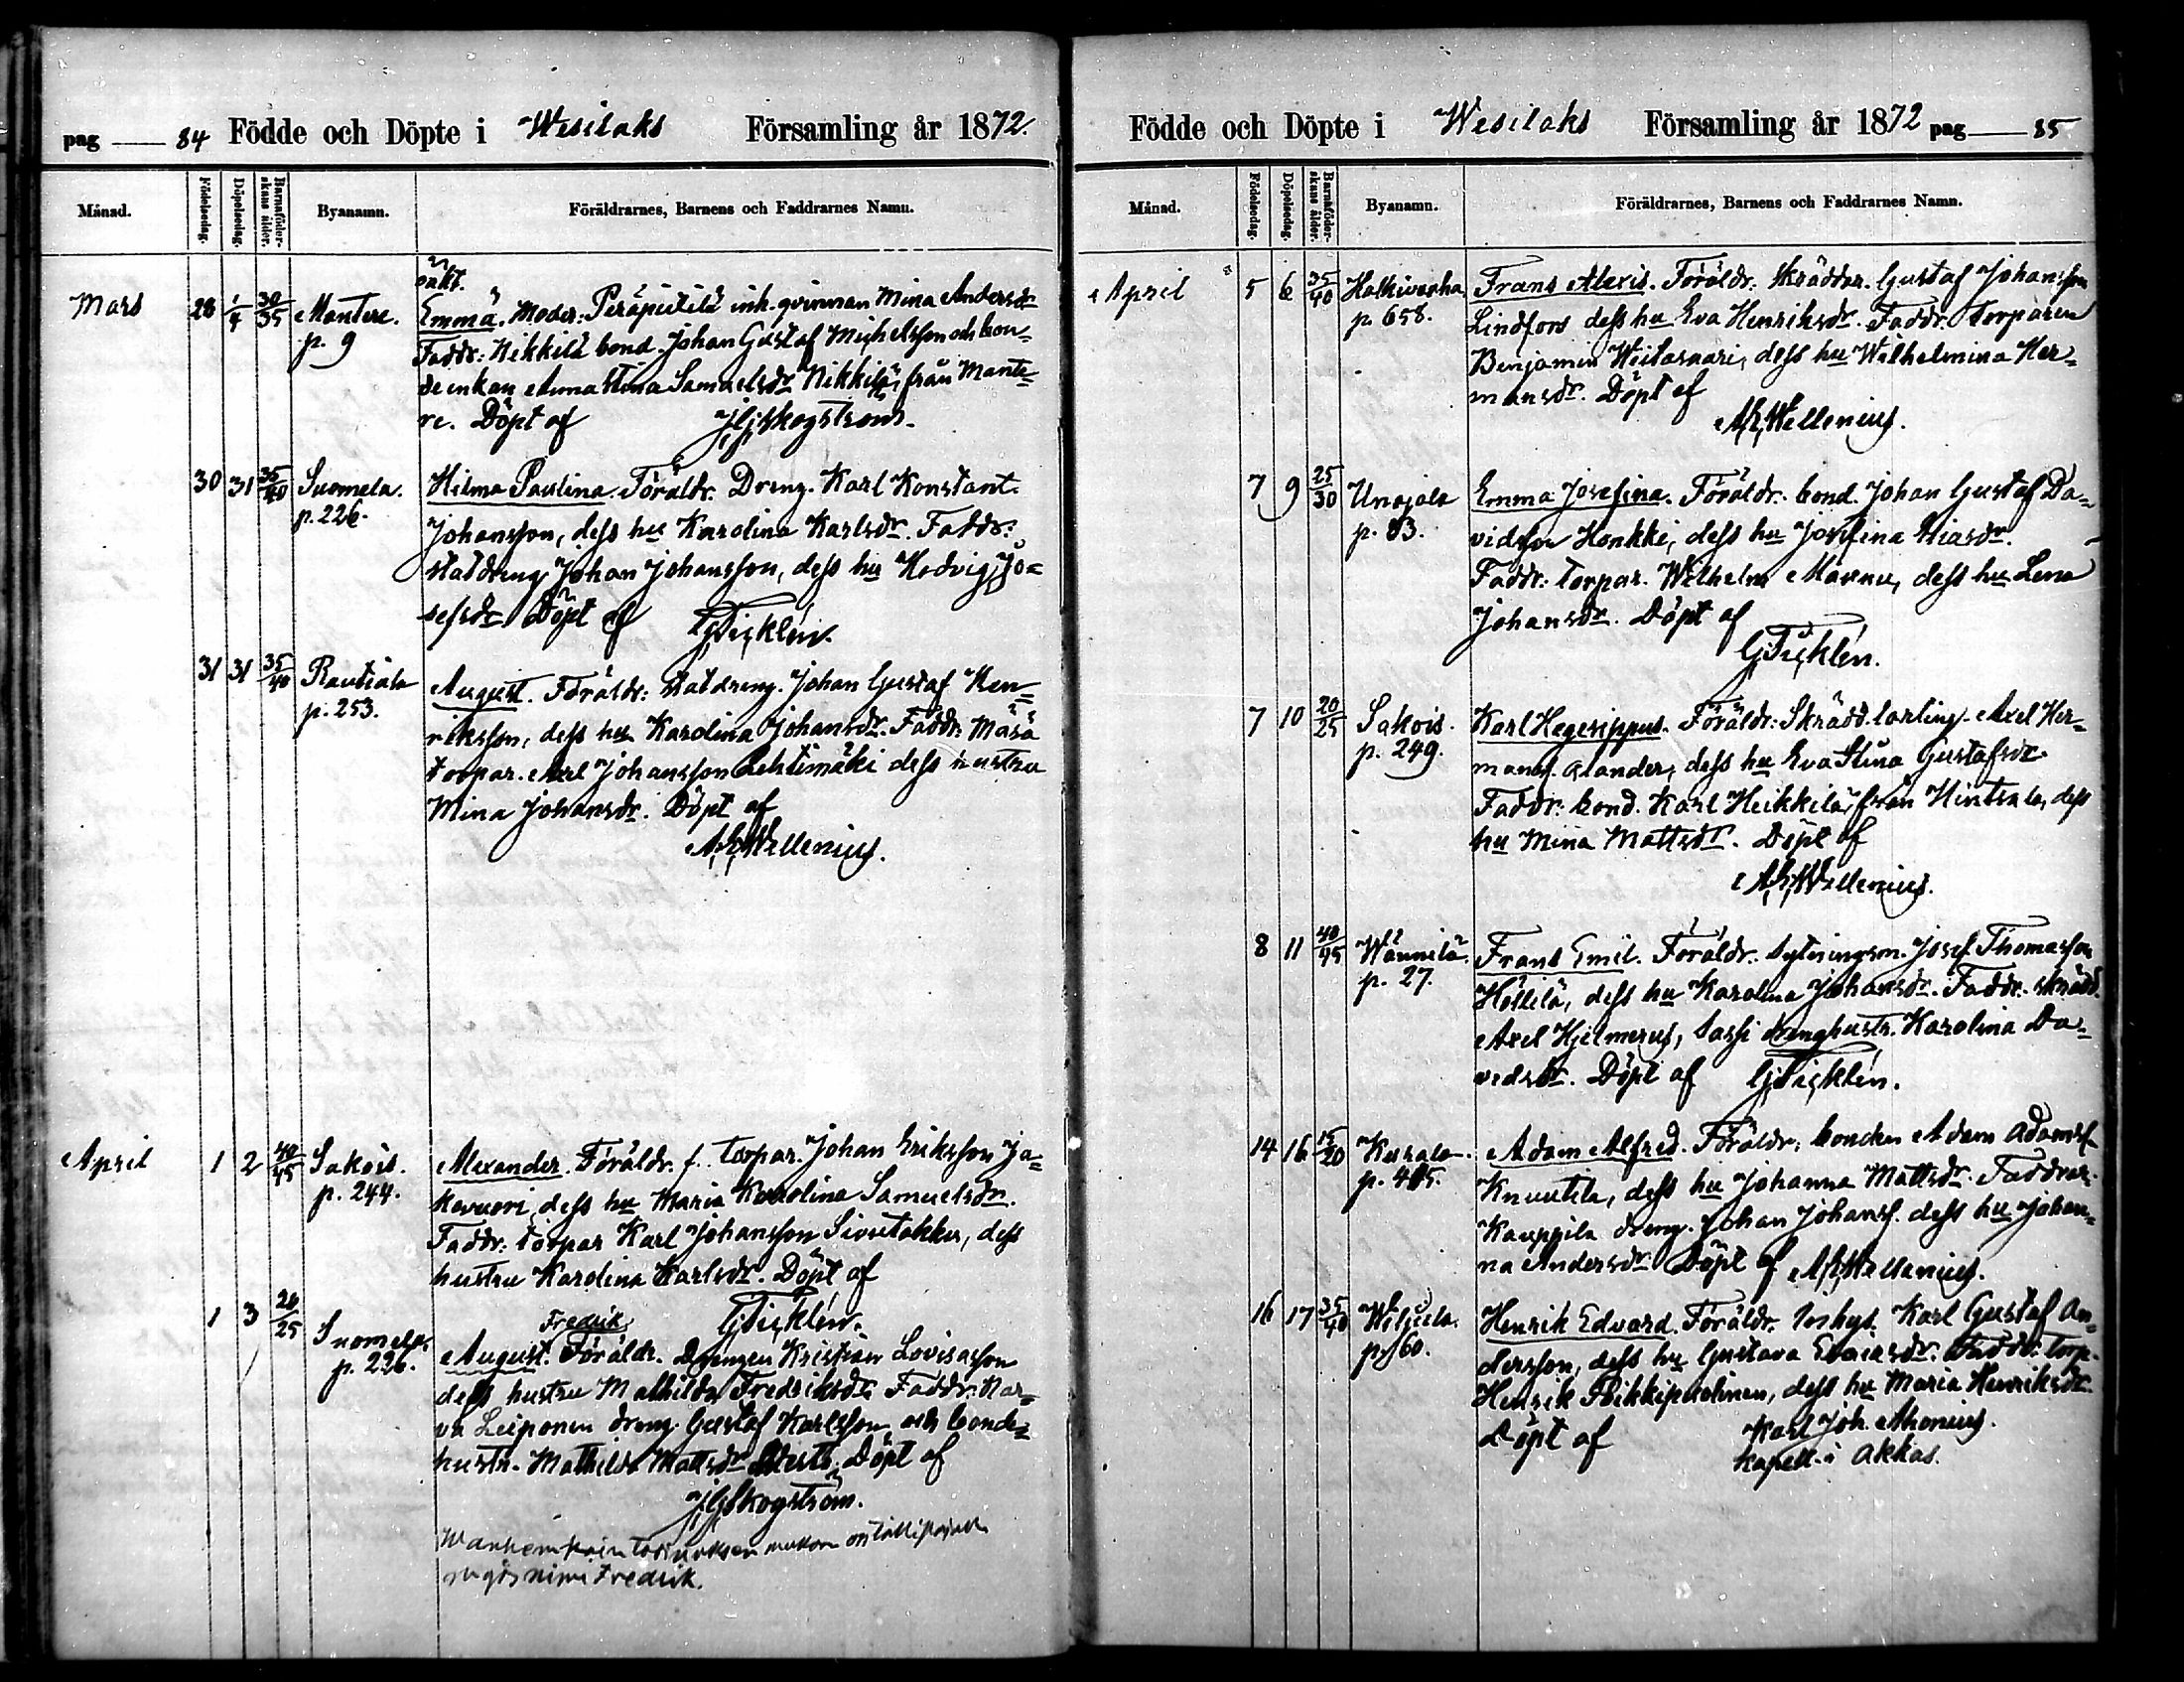 pag 84 Födde och Döpte i Wesilaks Församling år 1872.
Månad. Födelsedag. Döpelsedag. Barnaföderskans ålder. Byanamn. Föräldrarnes, Barnens och Faddrarnes Namn.
oäkt.
Mars 28 1/4 30/35 Mantere. Emma. Moder: Peräpietilä inh. qvinnan Mina Andersdr
p. 9 Faddr: Nikkilä bond. Johan Gustaf Michelsson och bon-
deenkan Anna Stina Samuelsdr Nikkilä, från Mante-
re. Döpt af J.G. Skogström.
30 31 35/40 Suomela. Hilma Paulina. Föräldr. Dreng. Karl Konstant.
p. 226. Johansson, dess hu Karolina Karlsdr. Faddr:
statdreng Johan Johansson, dess hu Hedvig Jo=
sefsdr Döpt af G Ticklén.
31 31 35/40 Rautiala August. Föräldr: statdreng. Johan Gustaf Hen-
p. 253. riksson, dess hu Karolina Johansdr. Faddr:
torpar. Axel Johansson Lehtimäki dess hustru
Mina Johansdr. Döpt af
Wellenius.
April 1 2 40/45 Sakois. Alexander. Föräldr. f. torpar. Johan Eriksson Ja=
p. 244. kovuori, dess hu Maria Karolina Samuelsdr.
Faddr: torpar Karl Johansson dess
hustru Karolina Karlsdr. Döpt af
G Ticklén.
Fredrik
1 3 20/25 Suomela. August. Föräldr. Drengen Kristian Lovisasson
p. 226. dess hustru Mathilda Fredriksdr. Faddr: Nar=
va Leiponen dreng. Gustaf Karlsson och bonde=
hustr. Mathilda Mattsdr Döpt af
J G Skogström.
Wanhempain mukaan on
nimi Fredrik.
Födde och Döpte i Wesilaks Församling år 1872 pag 85
Månad. Födelsedag. Döpelsedag. Barnaföderskans ålder. Byanamn. Föräldrarnes, Barnens och Faddrarnes Namn.
April 5 6 35/40 Halkivaha Frans Alexis. Föräldr. skräddar. Gustaf Johansson
p. 658. Lindfors dess hu Eva Henriksdr. Faddr. Torparen
Benjamin dess hu Wilhelmina Her-
mansdr. Döpt af
Wellenius.
7 9 25/30 Unajala Emma Josefina. Föräldr. bond. Johan Gustaf Da=
p. 83. vidson Honkki, dess hu Josefina Eliasdr.
Faddr: torpar. Wilhelm dess hu Lena
Johansdr. Döpt af
G Ticklén.
7 10 20/25 Sakois. Karl Hegesippus. Föräldr: Skrädd. lärling. Axel Her-
p. 249. manss. Alander, dess hu Eva Stina Gustafsdr
Faddr: bond. Karl Heikkilä från Hintsala, dess
hu Mina Mattsdr. Döpt af
Wellenius.
8 11 40/45 Wännilä. Frans Emil. Föräldr. sytningsm. Josef Thomasson
p. 27. dess hu Karolina Johansdr. Faddr. skrädd.
Axel Hjelmerus, Sassi drenghustr. Karolina Da=
vidsdr. Döpt af G Ticklén.
14 16 15/20 Kurala. Adam Alfred. Föräldr: bonden Adam Adamss.
p. 415. Knuutila, dess hu Johanna Mattsdr. Faddrar.
Kauppila dreng. Johan Johanss. dess hu Johan-
na Andersdr. Döpt af Wellenius.
16 17 35/40 Henrik Edvard. Föräldr. Karl Gustaf An-
p. 160. dersson, dess hu Gustava Faddr: torp.
Henrik dess hu Maria Henriksdr.
Döpt af Karl Joh. Ahonius.
kapell. i Akkas.